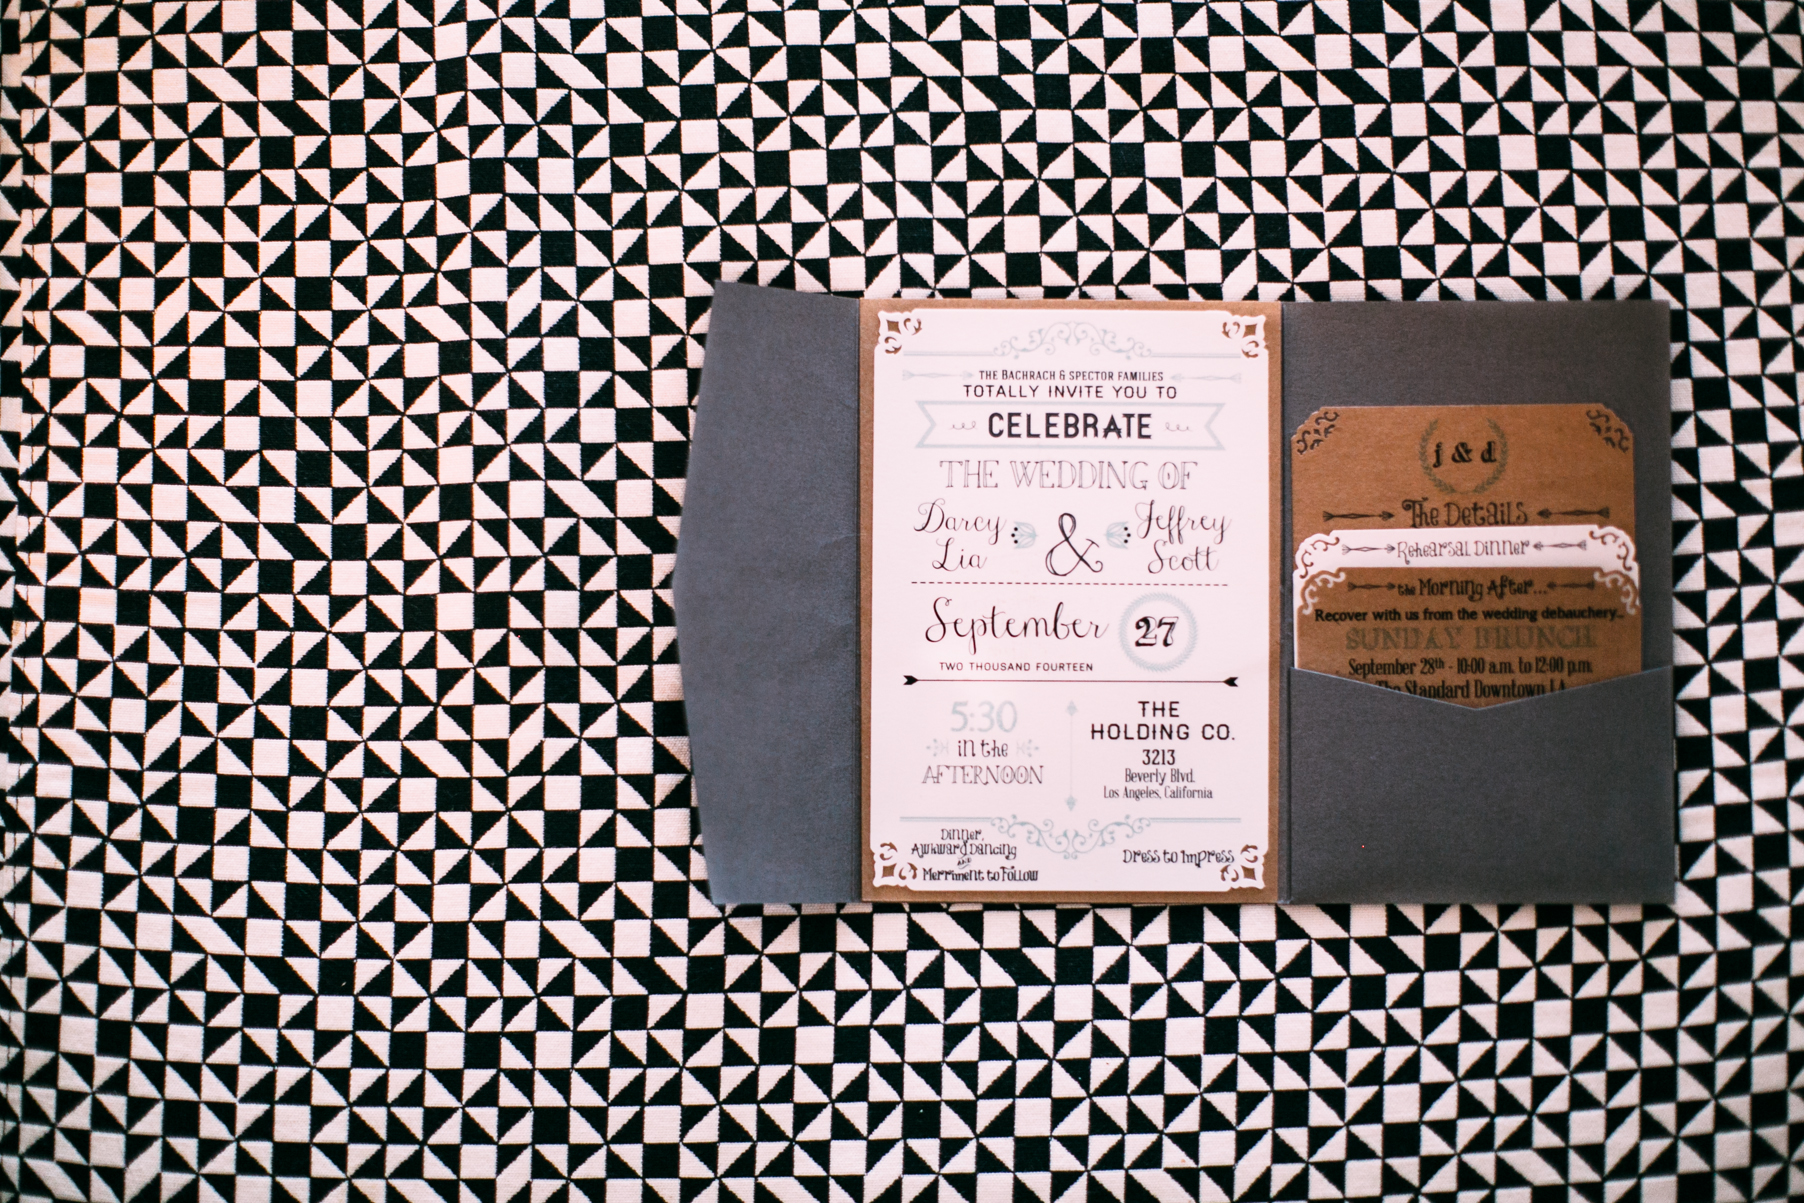 THE BACHRACH & SPECTOR FAMILIES
TOTALLY INVITE YOU TO
CELEBRATE
THE WEDDING OF
Darcy Lia & Jeffrey Scott
September 27
TWO THOUSAND FOURTEEN
5:30
in the
AFTERNOON
THE
HOLDING CO.
3213
Beverly Blvd.
Los Angeles, California
Dinner,
Awkward Dancing
AND
Merriment to Follow
Dress to Impress
j & d
The Details
Rehearsal Dinner
the Morning After...
Recover with us from the wedding debauchery...
SUNDAY BRUNCH
September 28th - 10:00 a.m. to 12:00 p.m.
The Standard Downtown LA